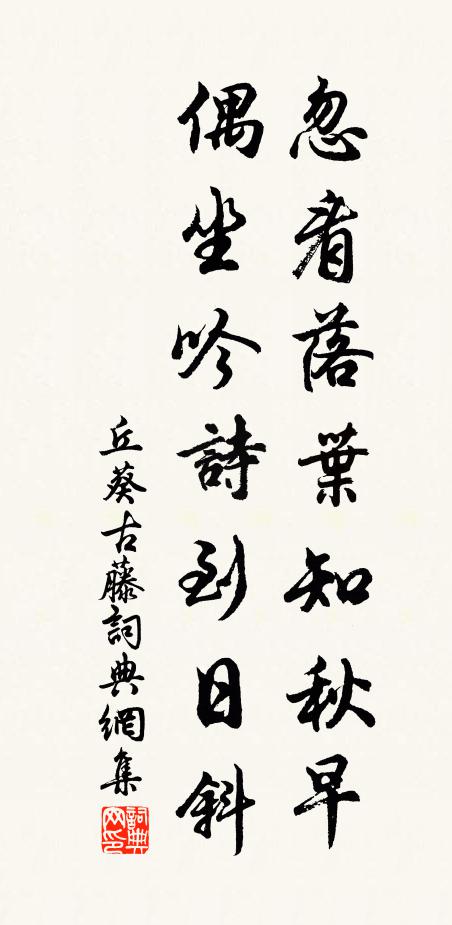 忽看落葉知秋早
偶坐吟詩到日斜
丘葵古藤詞典網集
詞典网印